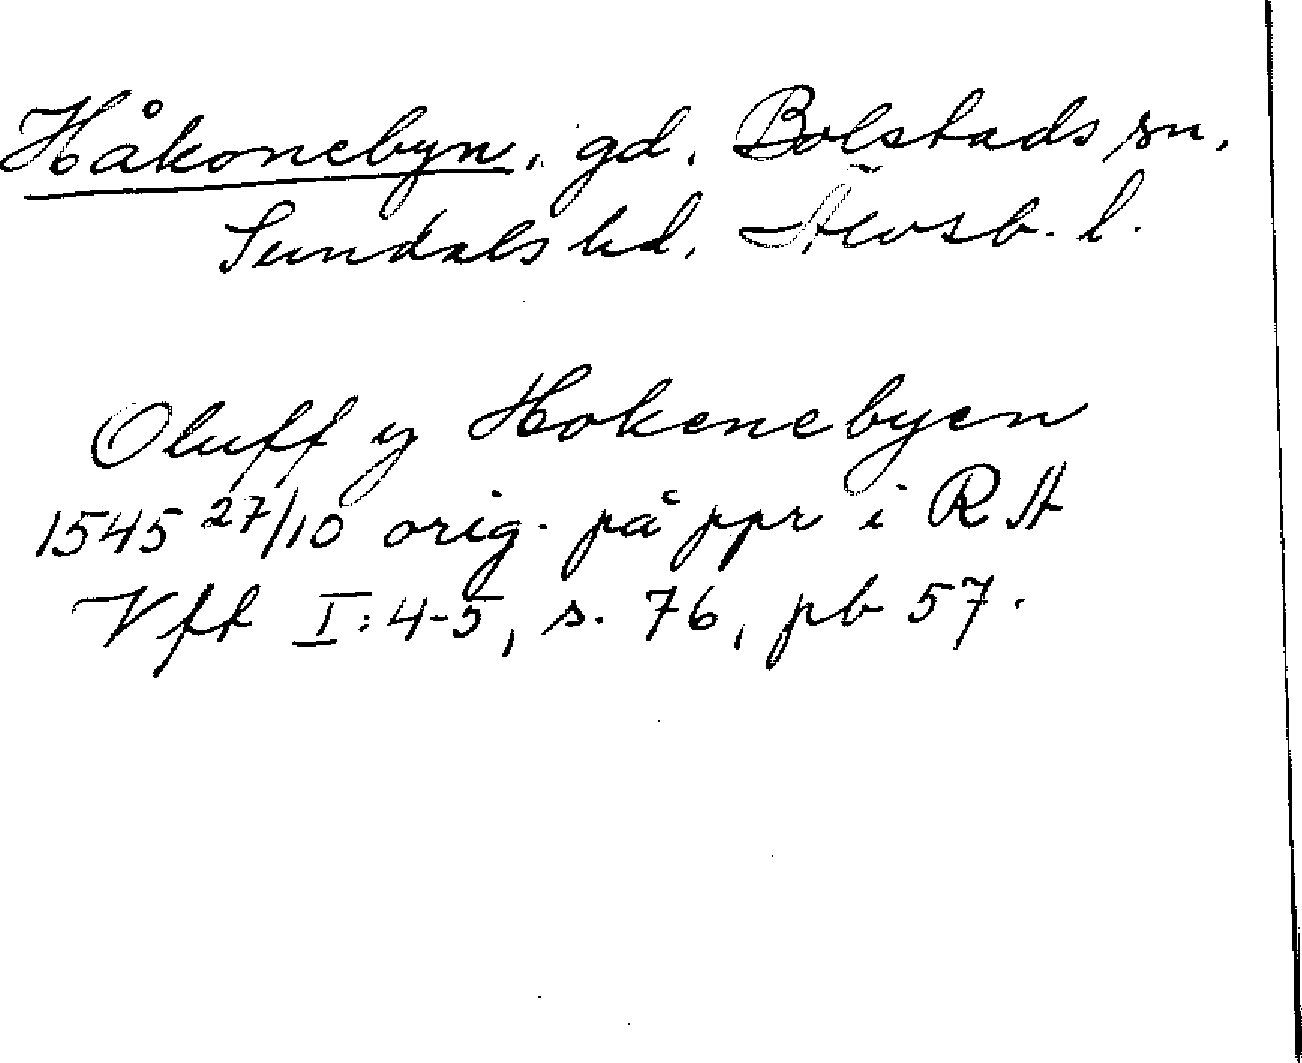 Håkonebyn, gd, Bolstads sn,
Sundals hd, Älvsb. l.
Oluff y Hokenebyen
1545 27/10 orig. på ppr i RA
Vft I:4-5, s. 76, pb 57.